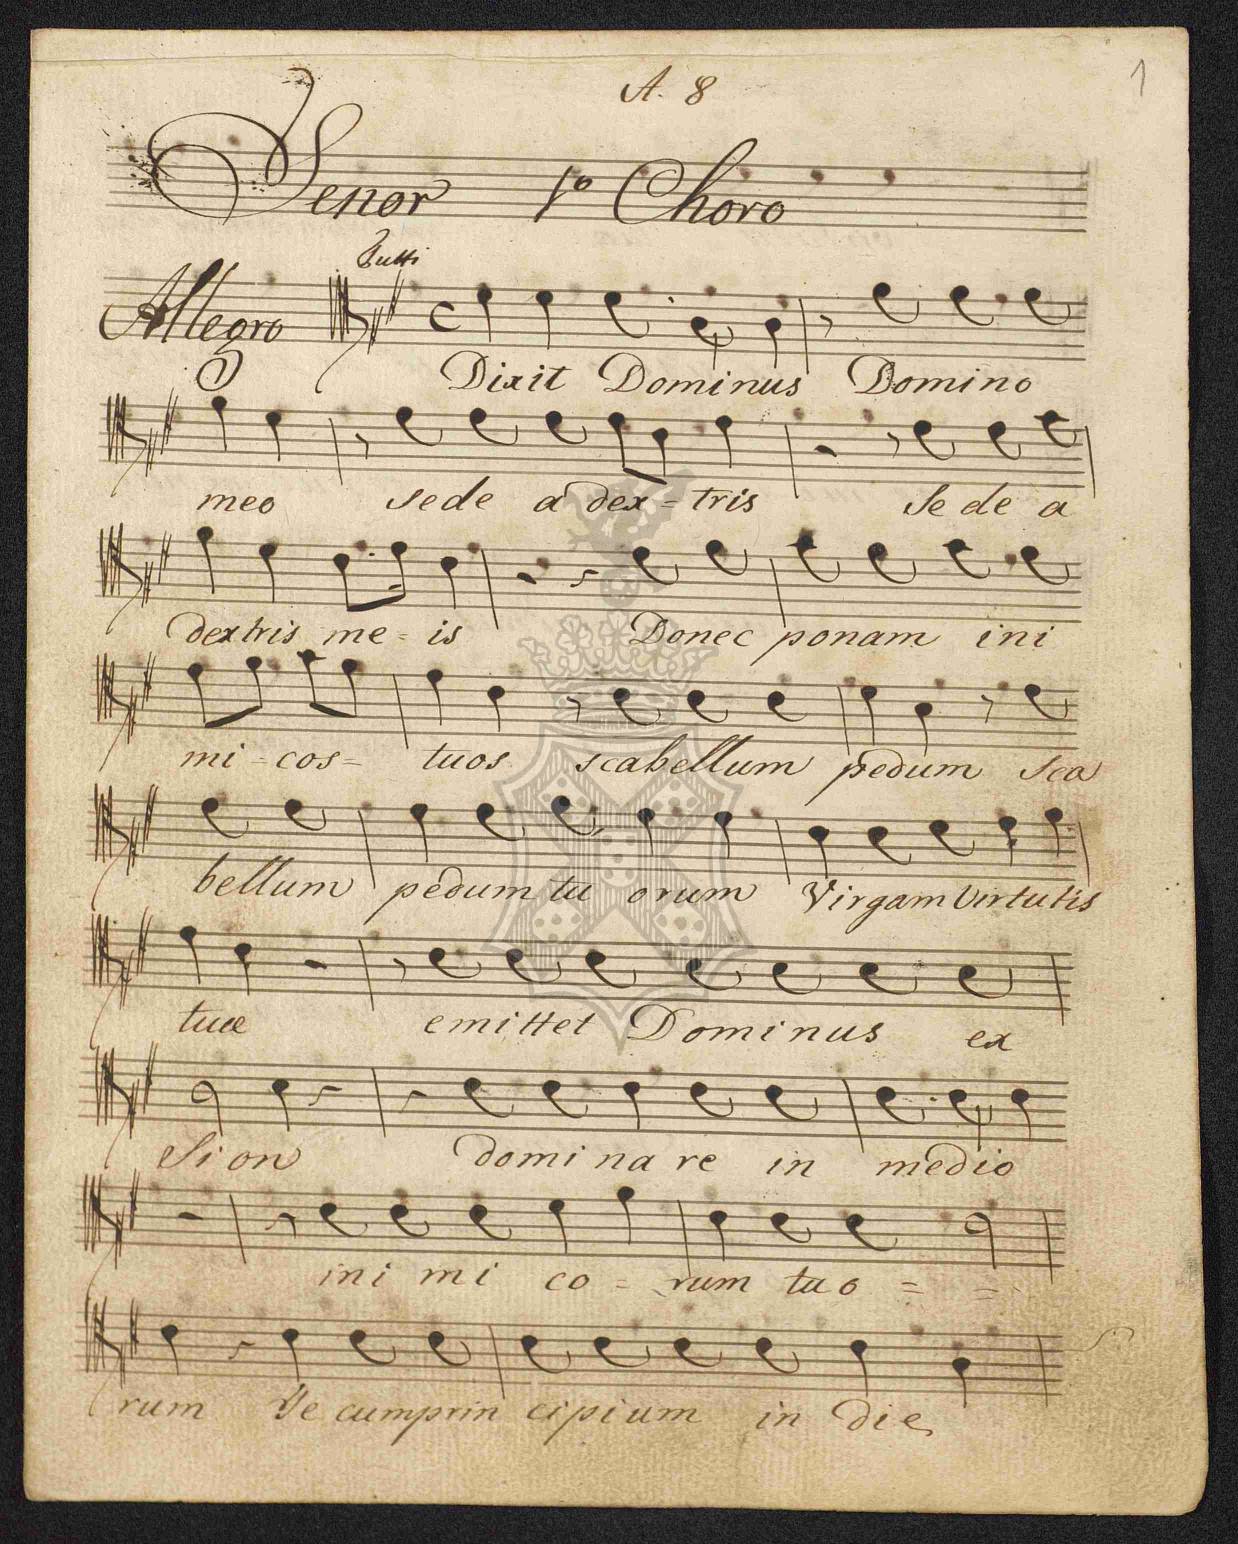 A. 8
1
Tenor 1º Choro
Tutti
Allegro
Dixit Dominus Domino
meo sede a dex - tris sede a
dextris me - is Donec ponam ini
mi - cos - tuos scabellum pedum sca
bellum pedum tu orum Virgam Virtutis
tuæ emittet Dominus ex
Sion dominare in medio
ini mi co - rum tuo = =
rum Te cumprin cipium in die